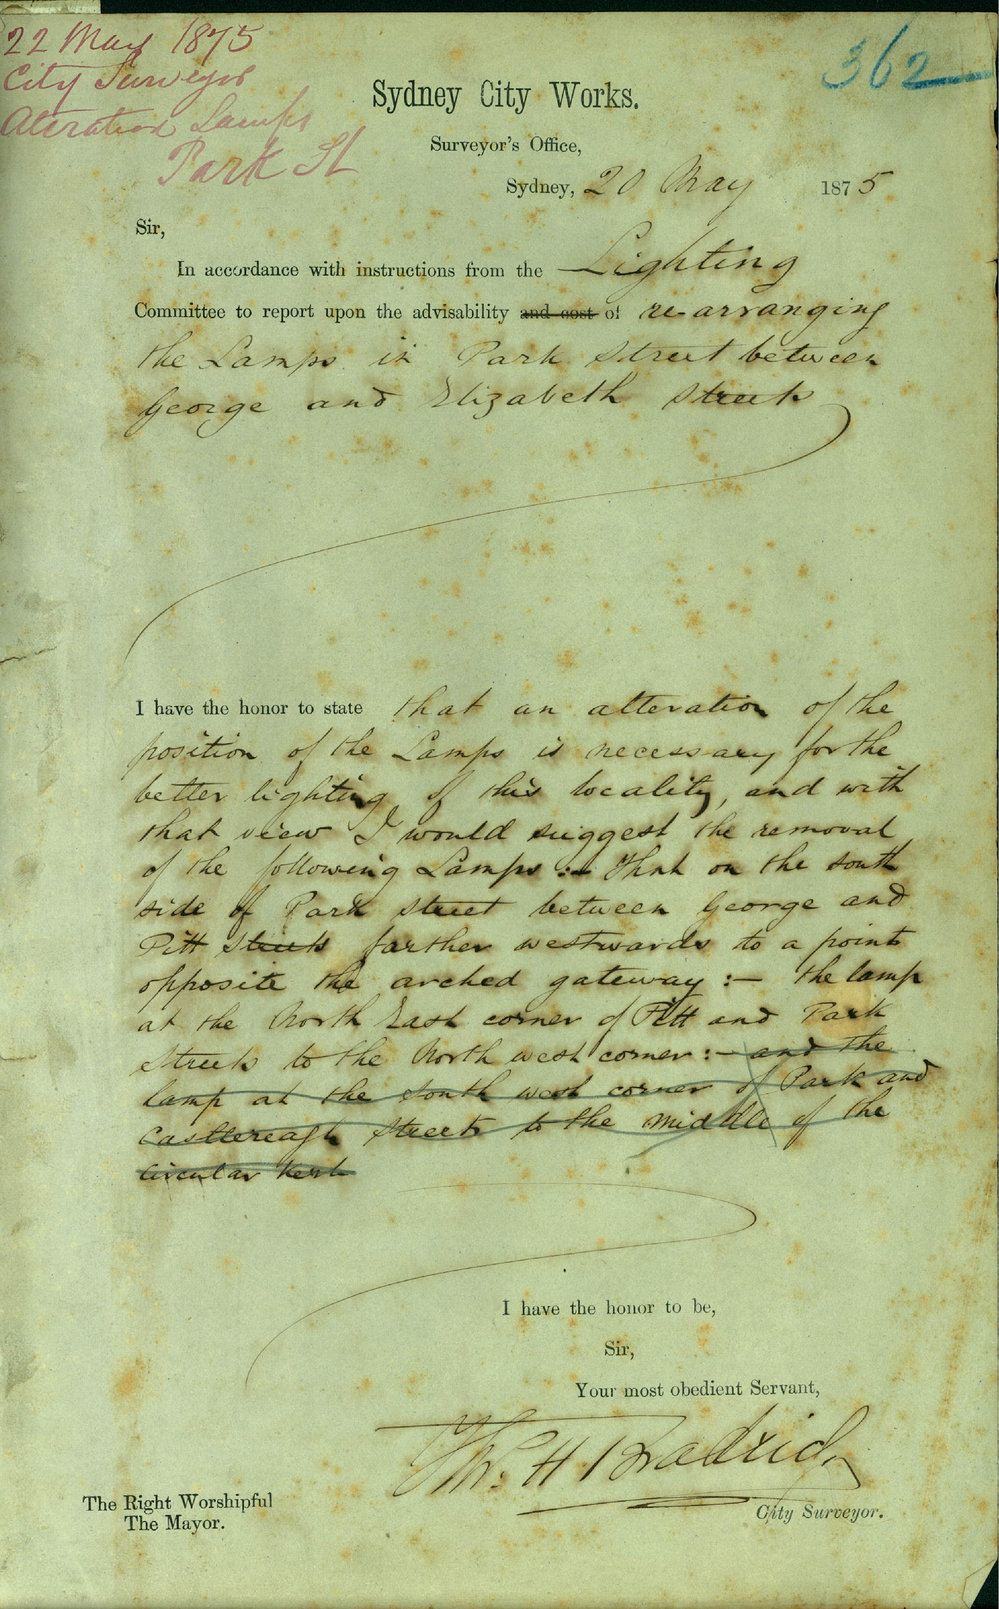 22 May 1875
City Surveyor
Alteration Lamps
Park St
362
Sydney City Works.
Surveyor's Office,
Sydney, 20 May 1875
Sir,
In accordance with instructions from the Lighting
Committee to report upon the advisability and cost of re-arranging
the Lamps in Park Street between
George and Elizabeth Streets
I have the honor to state that an alteration of the
position of the Lamps is necessary for the
better lighting of this locality, and with
that view I would suggest the removal
of the following Lamps :- That on the south
side of Park Street between George and
Pitt Streets farther westwards to a point
opposite the arched gateway :- the lamp
at the North East corner of Pitt and Park
Streets to the North west corner :- and the
lamp at the South west corner of Park and
Castlereagh Streets to the middle of the
Circular Kerb
I have the honor to be,
Sir,
Your most obedient Servant,
Thos. H Bradrid
The Right Worshipful
The Mayor.
City Surveyor.